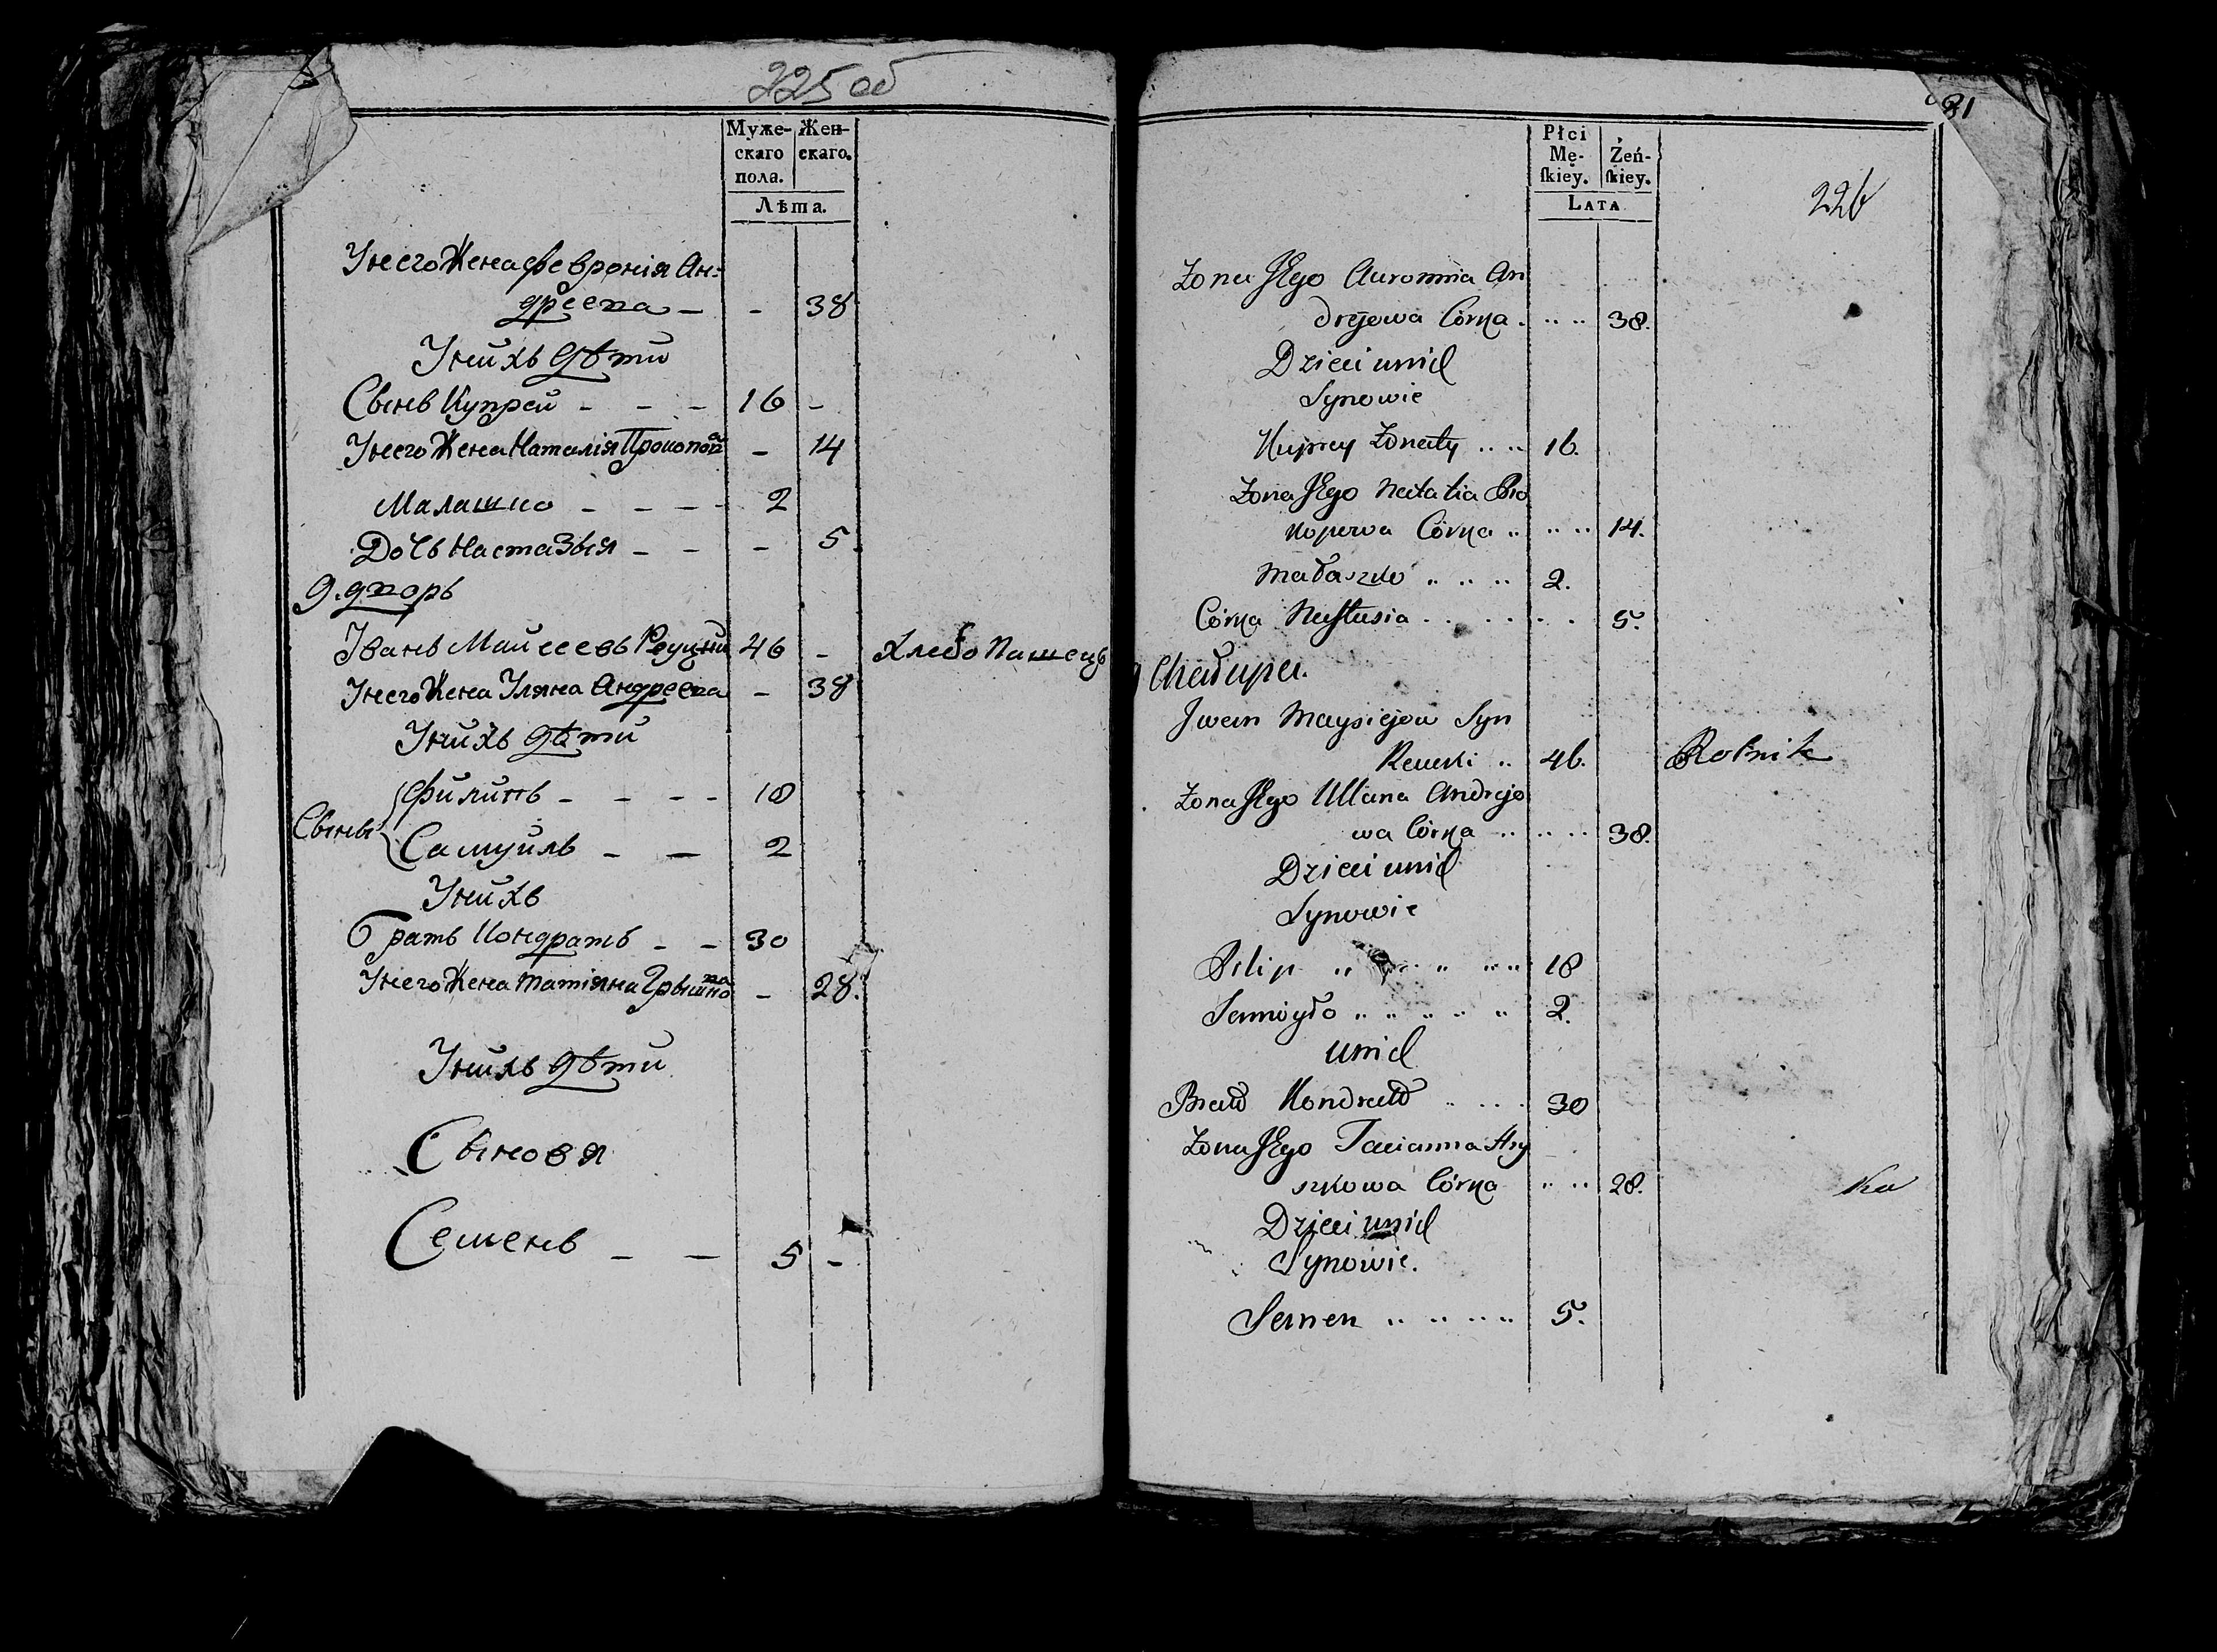 225 об
Муже- Жен-
скаго скаго.
пола.
Лѣта.
Унего Жена Февронія Ан=
дреева — - 38
Унихъ дѣти
Сынъ Купрей - - - 16 -
Унего Жена Наталія Прокопова - 14
Малашко - - - - 2
Дочь Настазыя - - - 5
9. дворъ
Іванъ Майсеевъ Реуцки 46 - Хлебопашецъ
Унего Жена Уляна Андреева - 38
Унихъ дѣти
Сыны Филипъ - - - - 18
Самуилъ - — 2
Унихъ
братъ Кондратъ - - 30
Унего Жена татіяна Грышкова - 28.
Унихъ дѣти
Сыновя
Семенъ — — 5 -
81
226
Płci
Mę- Żeń-
ſkiey. ſkiey.
LATA
Żona Jego Auronnia An
drejowa Córka . .. .. 38.
Dzieci unich
Synowie
Kuprey Żonaty .. .. 16.
Żona Jego Natalia Pro
kopowa Córka .. .. .. 14.
Małaszko .. .. .. 2.
Córka Nastusia . . . . . . 5.
9 Chałupa.
Jwan Maysiejow Syn
Reucki .. 46. Rolnik
Żona Jego Ullana Andrejo
wa Córka .. .. .. 38.
Dzieci unich
Synowie
Filip .. .. .. .. 18
Samoyło .. .. .. .. .. 2.
unich
Brat Kondrat .. . . . 30
Żona Jego Tacianna Hry
szkowa Córka .. .. 28. Ka
Dzieci unich
Synowie.
Semen .. .. .. .. 5.